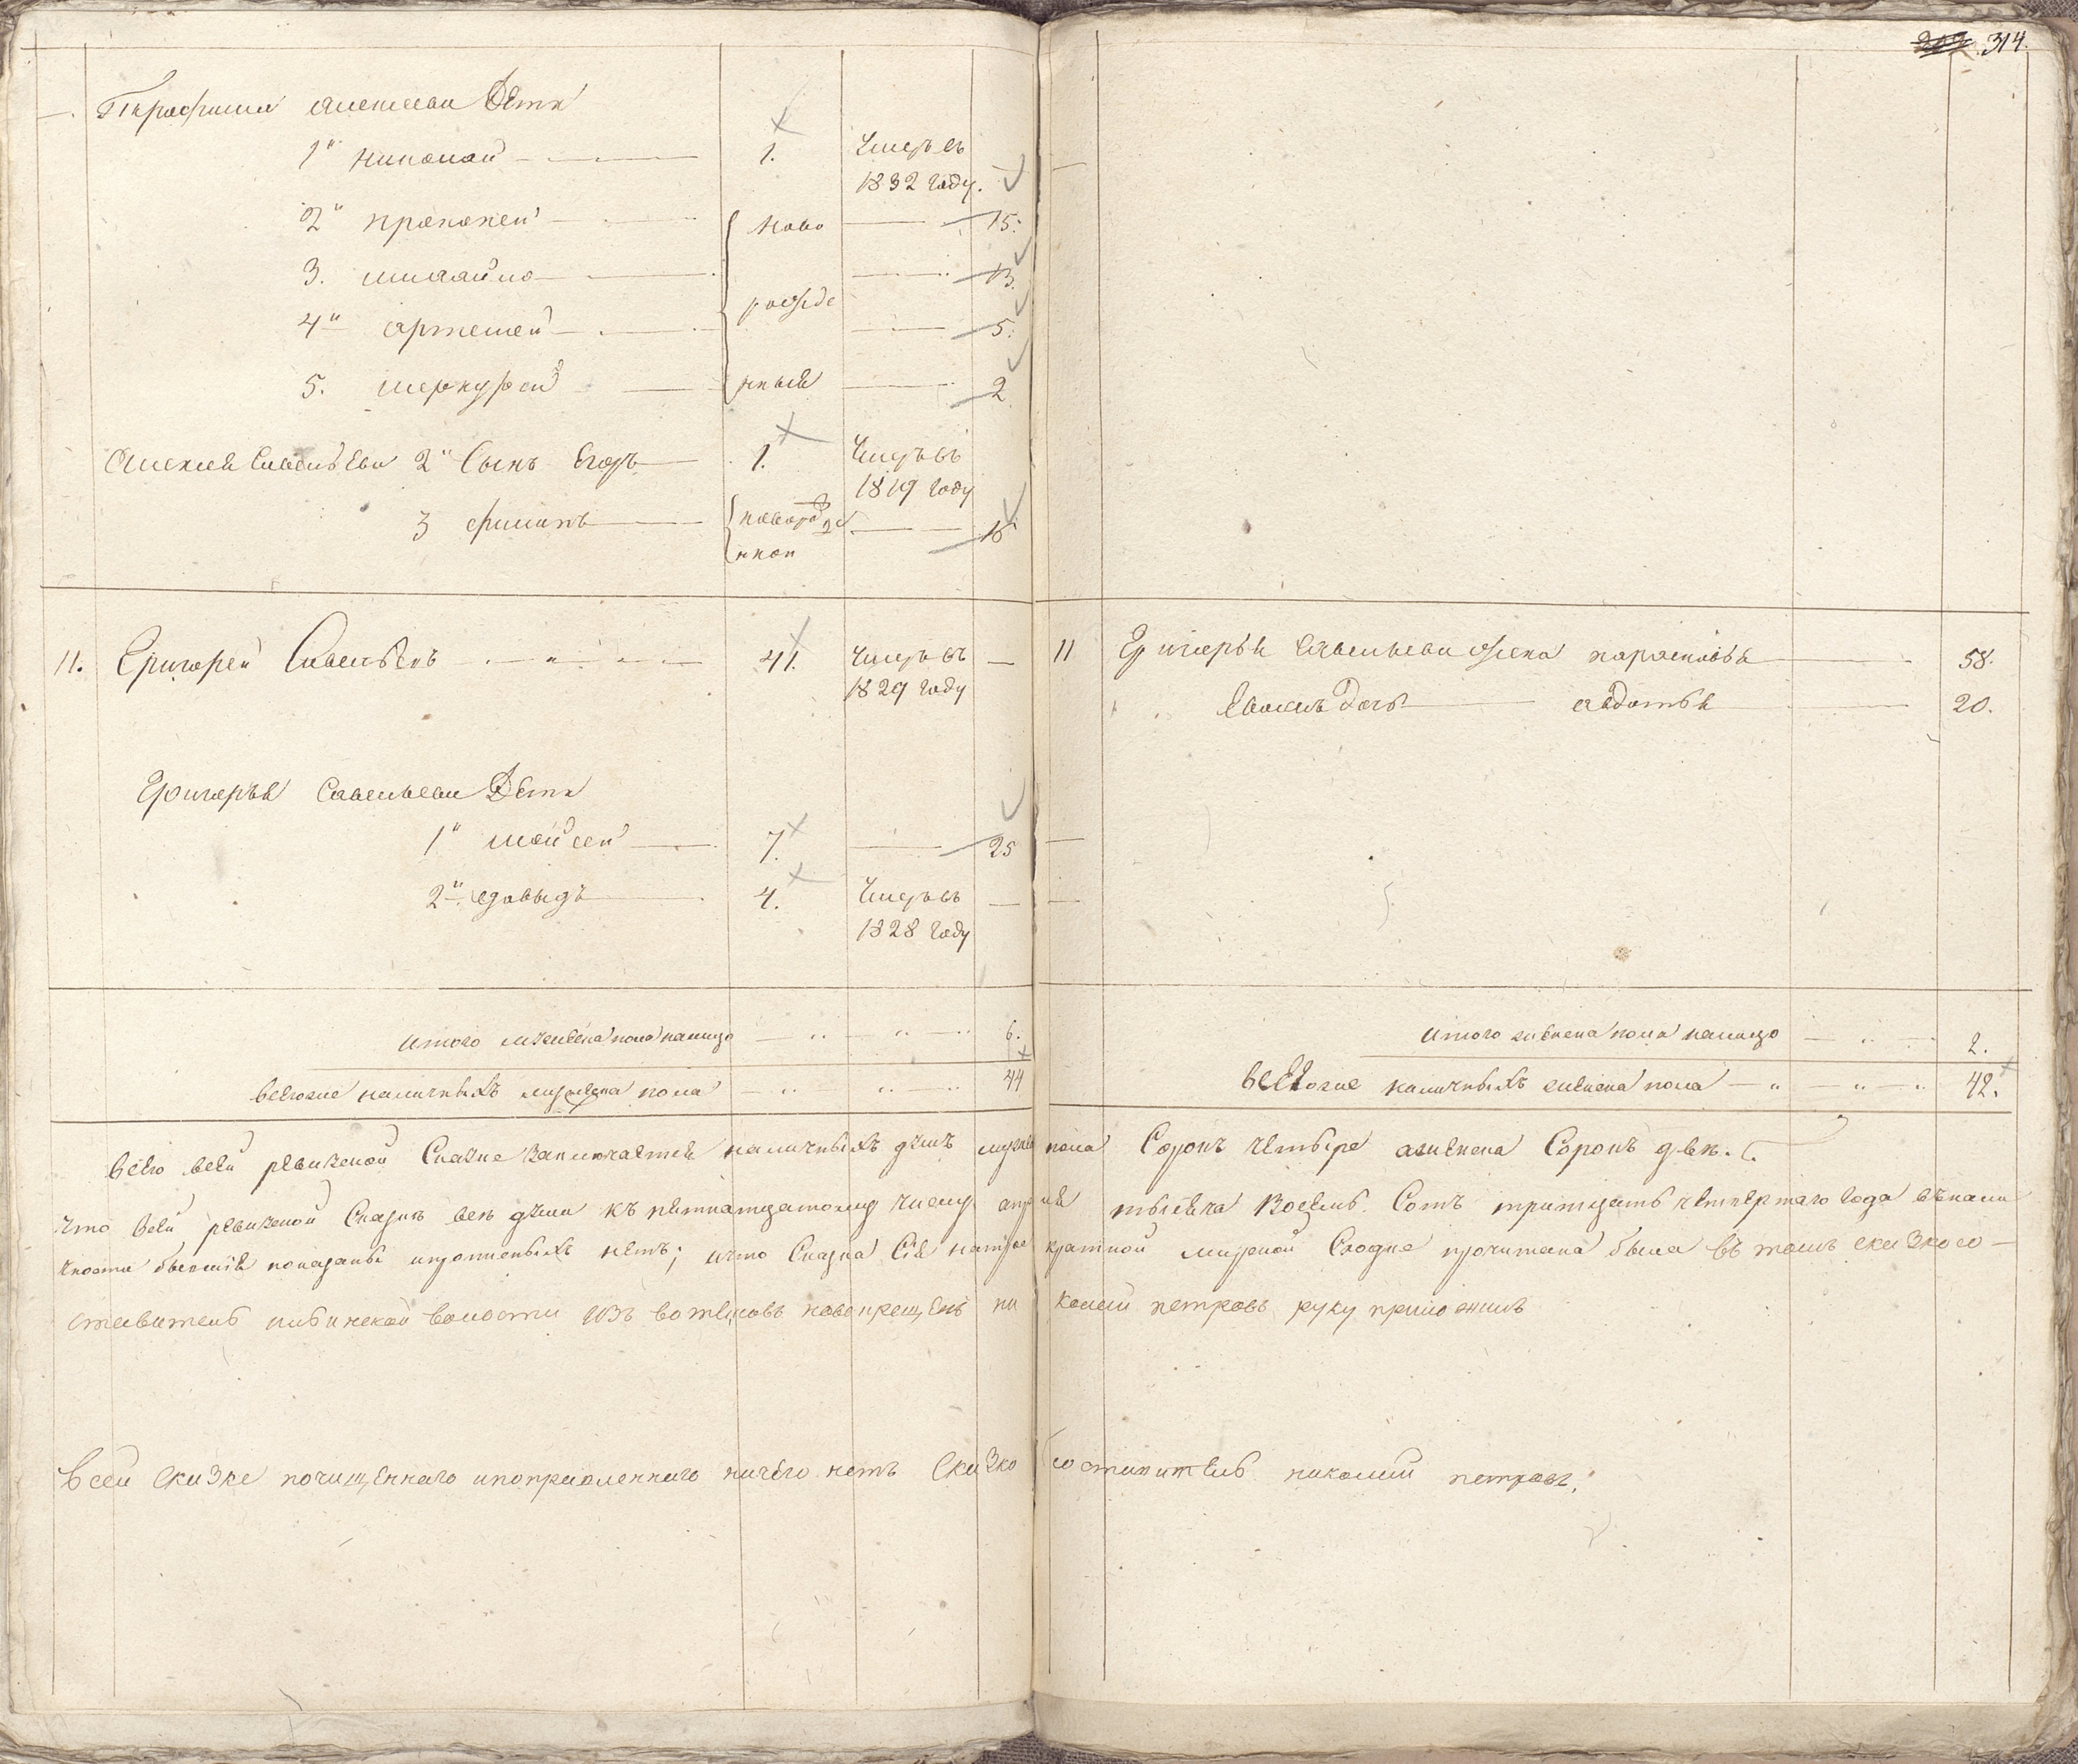 314.
Трофима алексеева Дѣти
1й николай 1. Умеръ въ
1832 году.
2й прокопей ново 15.
3. михайло 13.
рожде
4й артемей 5.
5. меркурей нныя 2
Алексея Савельева 2й Сынъ Егоръ 1. Умеръ въ
1819 году
3 филипъ новорожде 15
нной
11. Григорей Савельевъ 41. Умеръ въ —
1829 году
Григорья Савельева Дѣти
1й мойсей 7. 25
2й давыдъ 4. Умеръ въ —
1828 году
итого мужеска пола налицо 6.
всѣхоже наличныхъ мужеска пола 44
11 Григорья Савельева жена парасковья 58.
Евоже Дочь авдотья 20.
итого женска пола налицо 2.
всѣхоже наличныхъ женска пола 42.
всего всей ревизской Сказке заключается наличныхъ душъ мужеска пола Сорокъ четыре аженска Сорокъ две.
что всей ревизской Сказке все души къ пятнатцатому числу апреля тысяча Восемь Сотъ тритцать четвертаго года внали
чности бывшия показаны ипрописныхъ нетъ; ичто Сказка Сiя натрое кратной мирской Сходке прочитана была въ томъ сказкосо-
ставитель волости изъ вотяковъ новокрещенъ николай петровъ руку приложилъ
Всей сказке почищеннаго ипоправленнаго ничего нетъ сказкосоставитель николай петровъ.